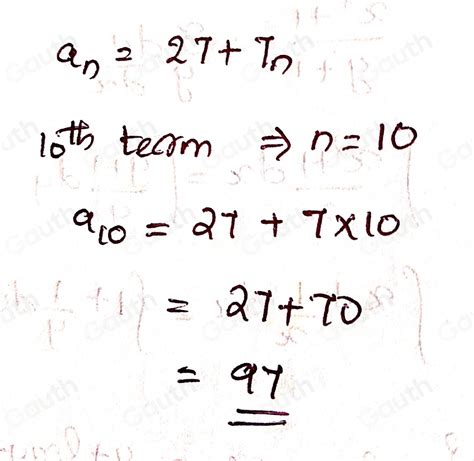 aₙ = 27 + 7n
10th term ⇒ n = 10
a₁₀ = 27 + 7×10
= 27 + 70
= 97